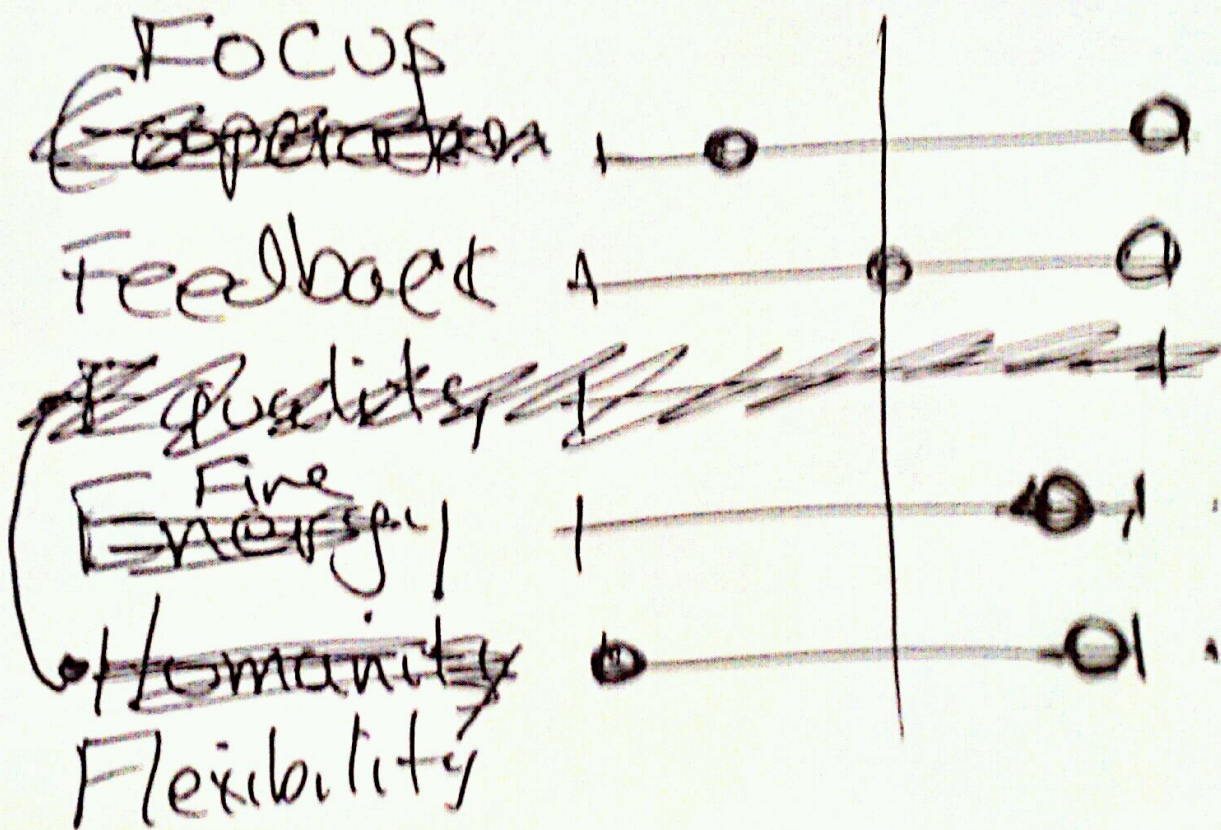 Focus
Cooperation
Feedback
Equality
Fire
Energy
Humanity
Flexibility